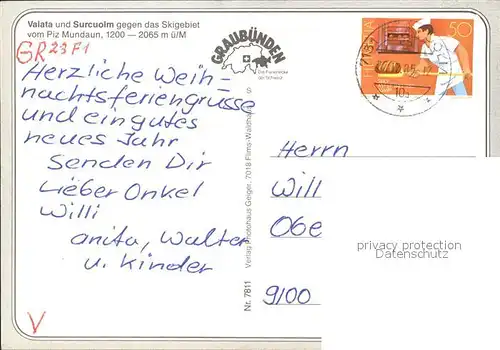 Valata und Surcuolm gegen das Skigebiet
vom Piz Mundaun, 1200 — 2065 m ü/M
GR 23 F1
GRAUBÜNDEN
Die Ferienecke
der Schweiz
HELVETIA
50
Herzliche Weih-
nachtsferiengrüsse
und ein gutes
neues Jahr
Senden Dir
Lieber Onkel
Willi
Anita, Walter
u. Kinder
V
Nr. 7811 Verlag Photohaus Geiger, 7018 Flims-Waldhaus
Herrn
Will
Obe
9100
privacy protection
Datenschutz